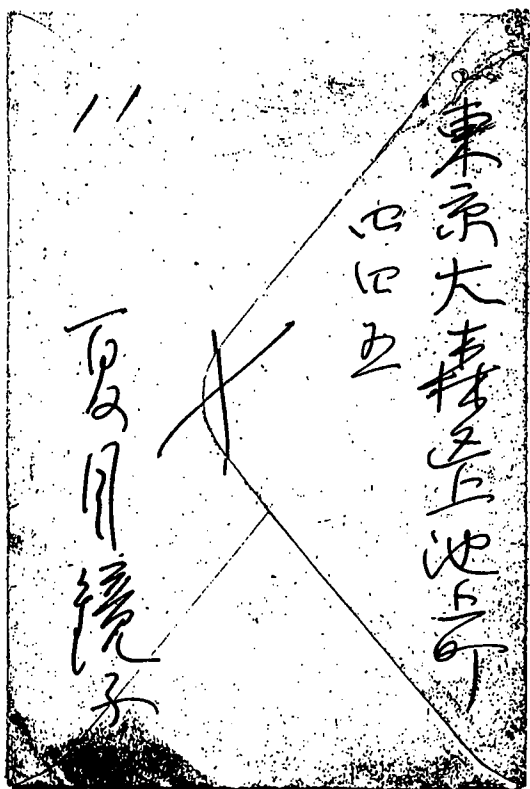 東京大森区上池上町
四四五
夏目鏡子